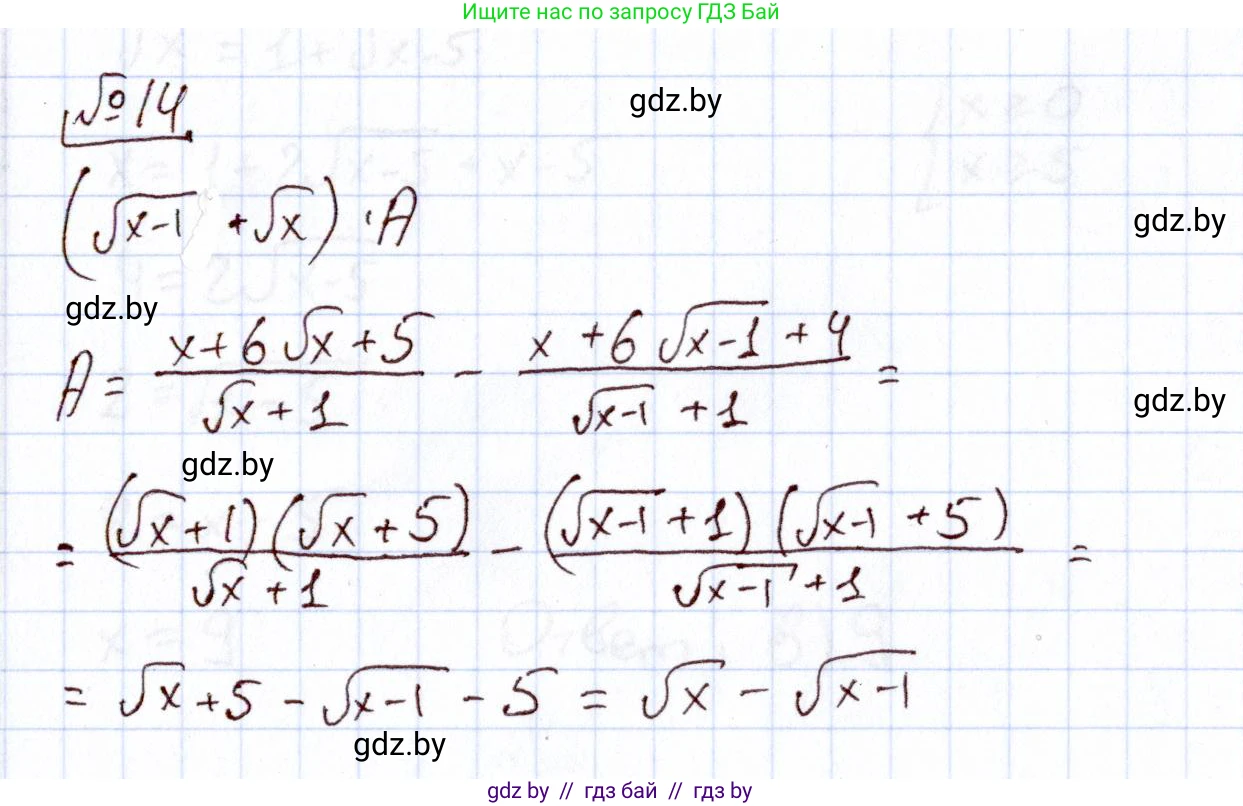 Ищите нас по запросу ГДЗ Бай
№14
gdz.by
(√(x-1) + √x) · A
gdz.by
gdz.by
A = (x+6√x+5)/(√x+1) - (x+6√(x-1)+4)/(√(x-1)+1) =
gdz.by
gdz.by
= ((√x+1)(√x+5))/(√x+1) - ((√(x-1)+1)(√(x-1)+5))/(√(x-1)+1) =
= √x+5 - √(x-1) - 5 = √x - √(x-1)
gdz.by
gdz by // гдз бай // gdz by